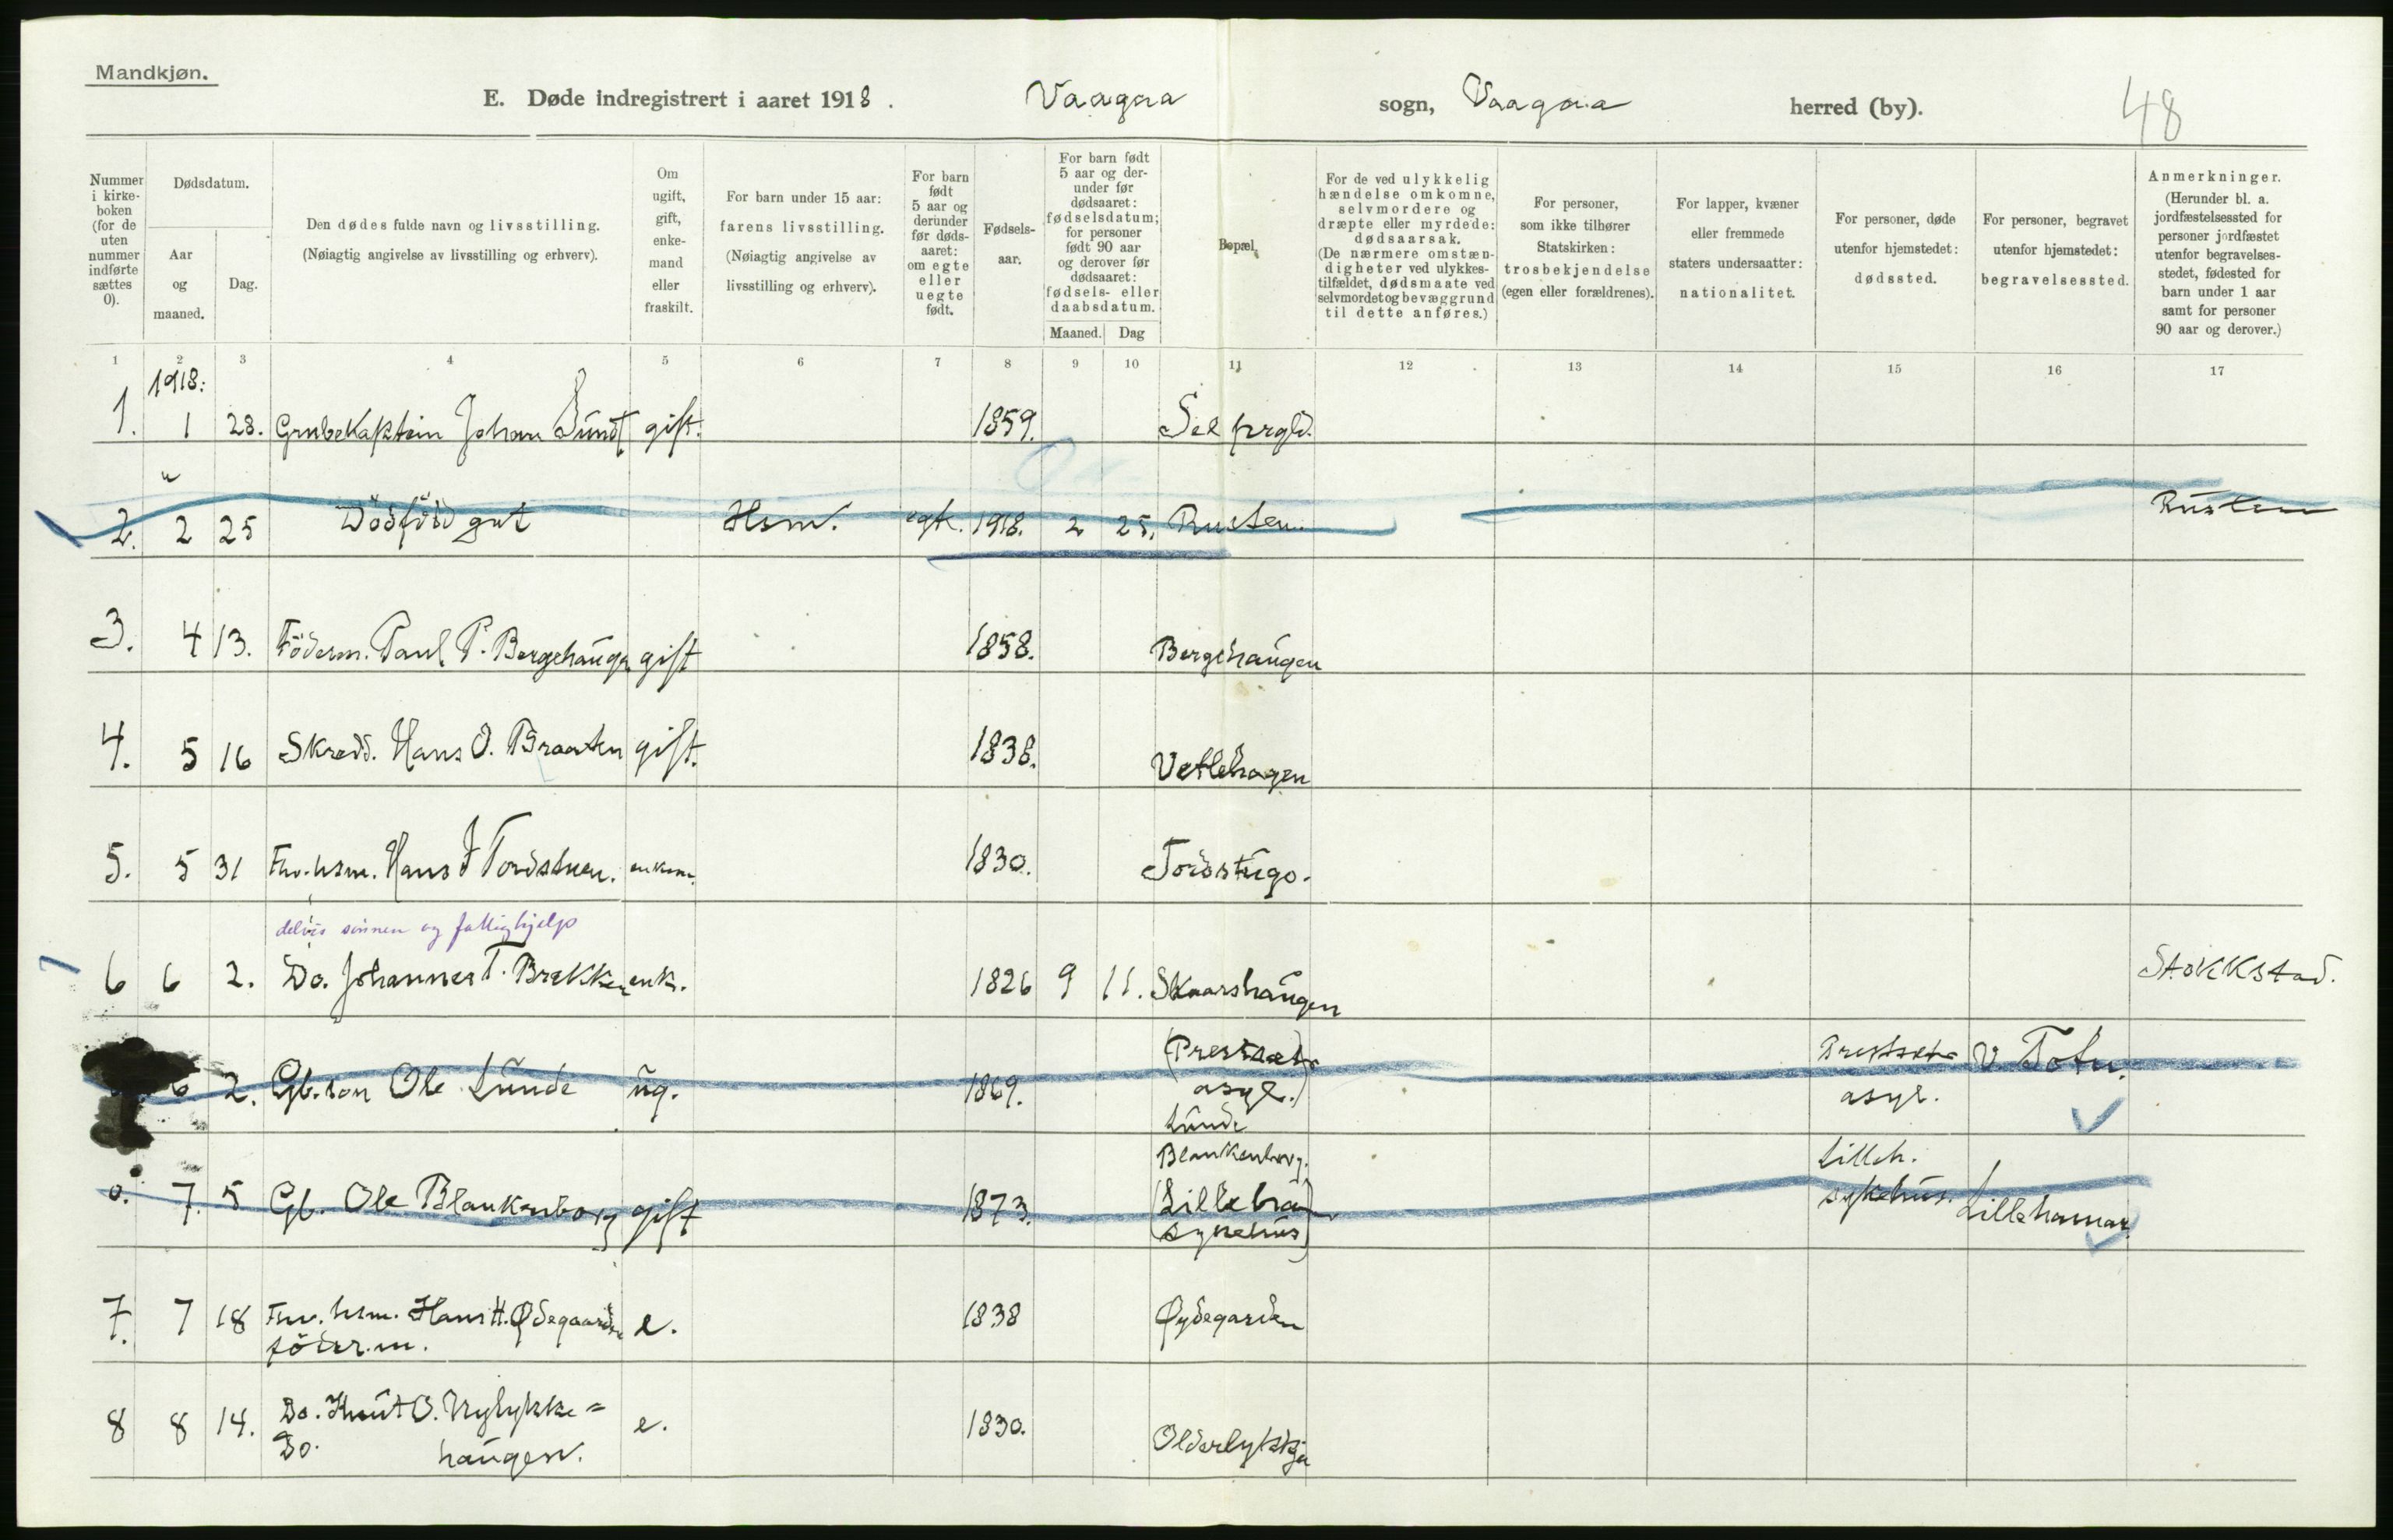 Mandkjøn.
E. Døde indregistrert i aaret 1918. Vaagaa sogn, Vaagaa herred (by).
48
Nummer i kirke- boken (for de uten nummer indførte sættes 0).
Dødsdatum.
Aar og maaned.
Dag.
Den dødes fulde navn og livsstilling.
(Nøiagtig angivelse av livsstilling og erhverv).
Om ugift, gift, enke- mand eller fraskilt.
For barn under 15 aar: farens livsstilling. (Nøiagtig angivelse av livsstilling og erhverv).
For barn født 5 aar og derunder før døds- aaret: om egte eller uegte født.
Fødsels- aar.
For barn født 5 aar og der- under før dødsaaret: fødselsdatum; for personer født 90 aar og derover før dødsaaret: fødsels- eller daabsdatum.
Maaned. Dag
Bopæl.
For de ved ulykkelig hændelse omkomne, selvmordere og dræpte eller myrdede: dødsaarsak. (De nærmere omstæn- digheter ved ulykkes- tilfældet, dødsmaate ved selvmordet og bevæggrund til dette anføres.)
For personer, som ikke tilhører Statskirken: trosbekjendelse (egen eller forældrenes).
For lapper, kvæner eller fremmede staters undersaatter: nationalitet.
For personer, døde utenfor hjemstedet: dødssted.
For personer, begravet utenfor hjemstedet: begravelsessted.
Anmerkninger. (Herunder bl. a. jordfæstelsessted for personer jordfæstet utenfor begravelses- stedet, fødested for barn under 1 aar samt for personer 90 aar og derover.)
1 2 3 4 5 6 7 8 9 10 11 12 13 14 15 16 17
1918:
1. 1 28. Grubekaptein Johan Sundt gift. 1859. Sel prgld.
"
2. 2 25 Dödfödd gut Hsm. egte. 1918. 2 25. Rusten. Rusten
3. 4 13. Föderm. Paul P. Bergehaugen gift 1858. Bergehaugen
4. 5 16 Skredd. Hans O. Braaten gift. 1838. Vetlehagen
5. 5 31 Fhv. hsm. Hans J Tordstuen. enkem. 1830. Tordstugo.
delvis sønnen og fattighjelp
6 6 2. Do. Johannes T. Brekken enk. 1826 9 11. Skaarshaugen Stokkstad.
6 2. Gb. son Ole Lunde ug. 1869. (Prestsæter asyl.) Lunde Prestsæter asyl. V. Toten.
Blankenborg.
0. 7. 5 Gb. Ole Blankenborg gift 1873. (Lilleham sykehus) Lilleh. sykehus. Lillehamar
7. 7 18 Fhv. hsm. Hans H. Ødegaarden e. 1838 Øydegarden
föderm.
8 8 14. Do. Knut O. Nylykke= e. 1830. Olderlykkja
Do. haugen.